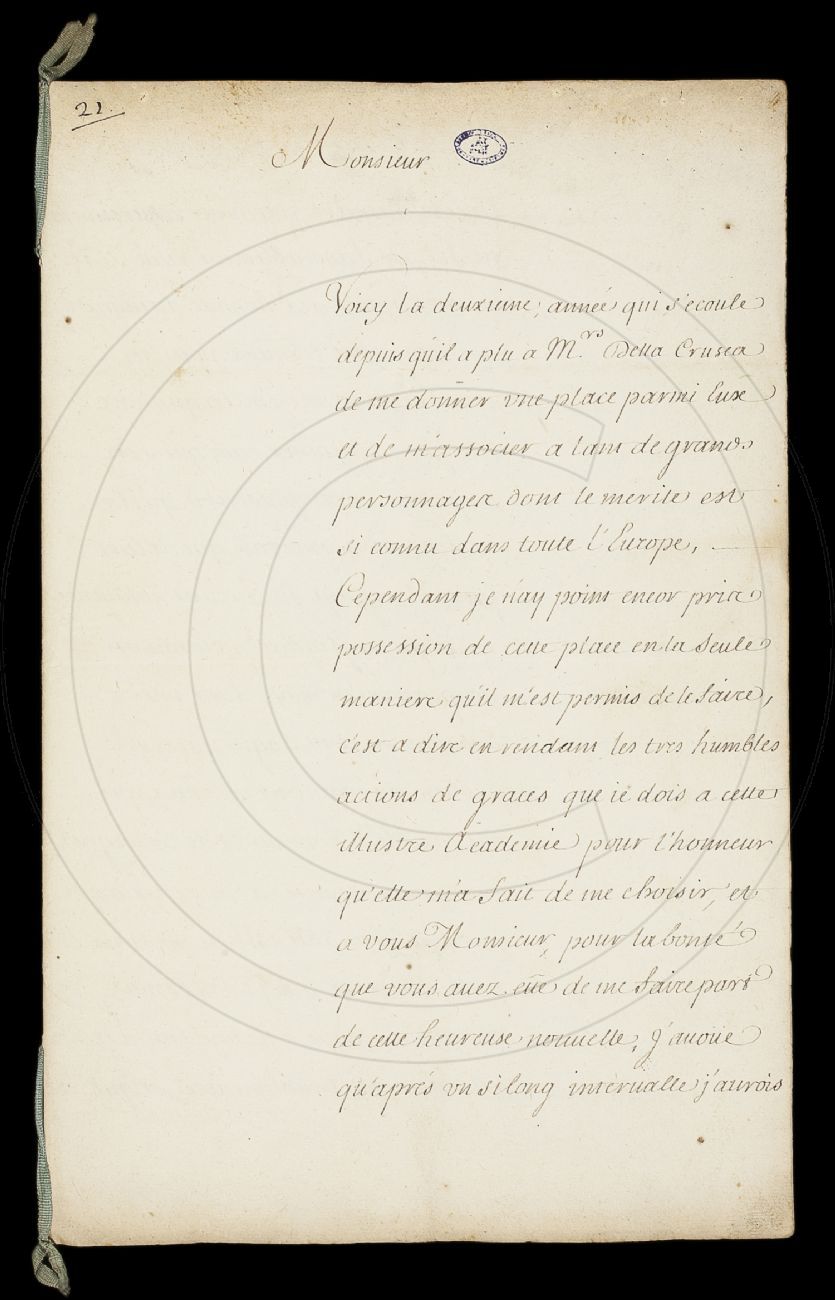 21.
Monsieur
Voicy la deuxieme, année qui s'ecoule
depuis qu'il a plu a M.rs Della Crusca
de me donner vne place parmi Eux
et de m'associer a tant de grands
personnages dont le merite est
si connu dans toute l'Europe,
Cependant je n'ay point encor prise
possession de cette place en la seule
maniere qu'il m'est permis de le faire,
c'est a dire en rendant les tres humbles
actions de graces que ie dois a cette
illustre Academie pour l'honneur
qu'elle m'a fait de me choisir, et
a vous Monsieur, pour la bonté
que vous auez eüe de me faire part
de cette heureuse nouuelle, J'auoüe
qu'aprés vn si long interualle j'aurois